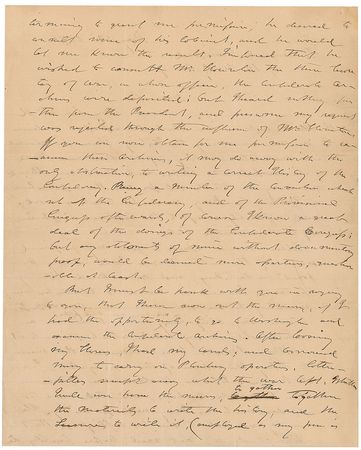 to grant me permission, he desired to
consult some of his Cabinet, and he would
let me know the result. Inferred that he
wished to consult Mr. Stanton the then Secre
tary of war, in whose office, the Confederate Ar
chives were deposited; but I heard nothing fur
ther from the President, and presume my request
was rejected through the influence of Mr. Stanton
If you can now obtain for me permission to ex
amine these archives, it may do away with the
only obstruction, to writing a correct History of the
Confederacy. Being a member of the Convention which
set of the Confederacy, and of the Provisional
Congress afterwards, of course I know a great
deal of the doings of the Confederate Congress;
but any statements of mine without documentary
proof, would be deemed mere
at least.
But I must be frank with you in saying
to you, that I have now not the means, if I
had the opportunity, to go to Washington and
examine the Confederate archives. After losing
my I had my lands; and borrowed
money to carry on Planting operations.
swept away what the war left.
have now the means, to gather together
the materials to write the history; and the
Leisure to write it (employed as my pen is